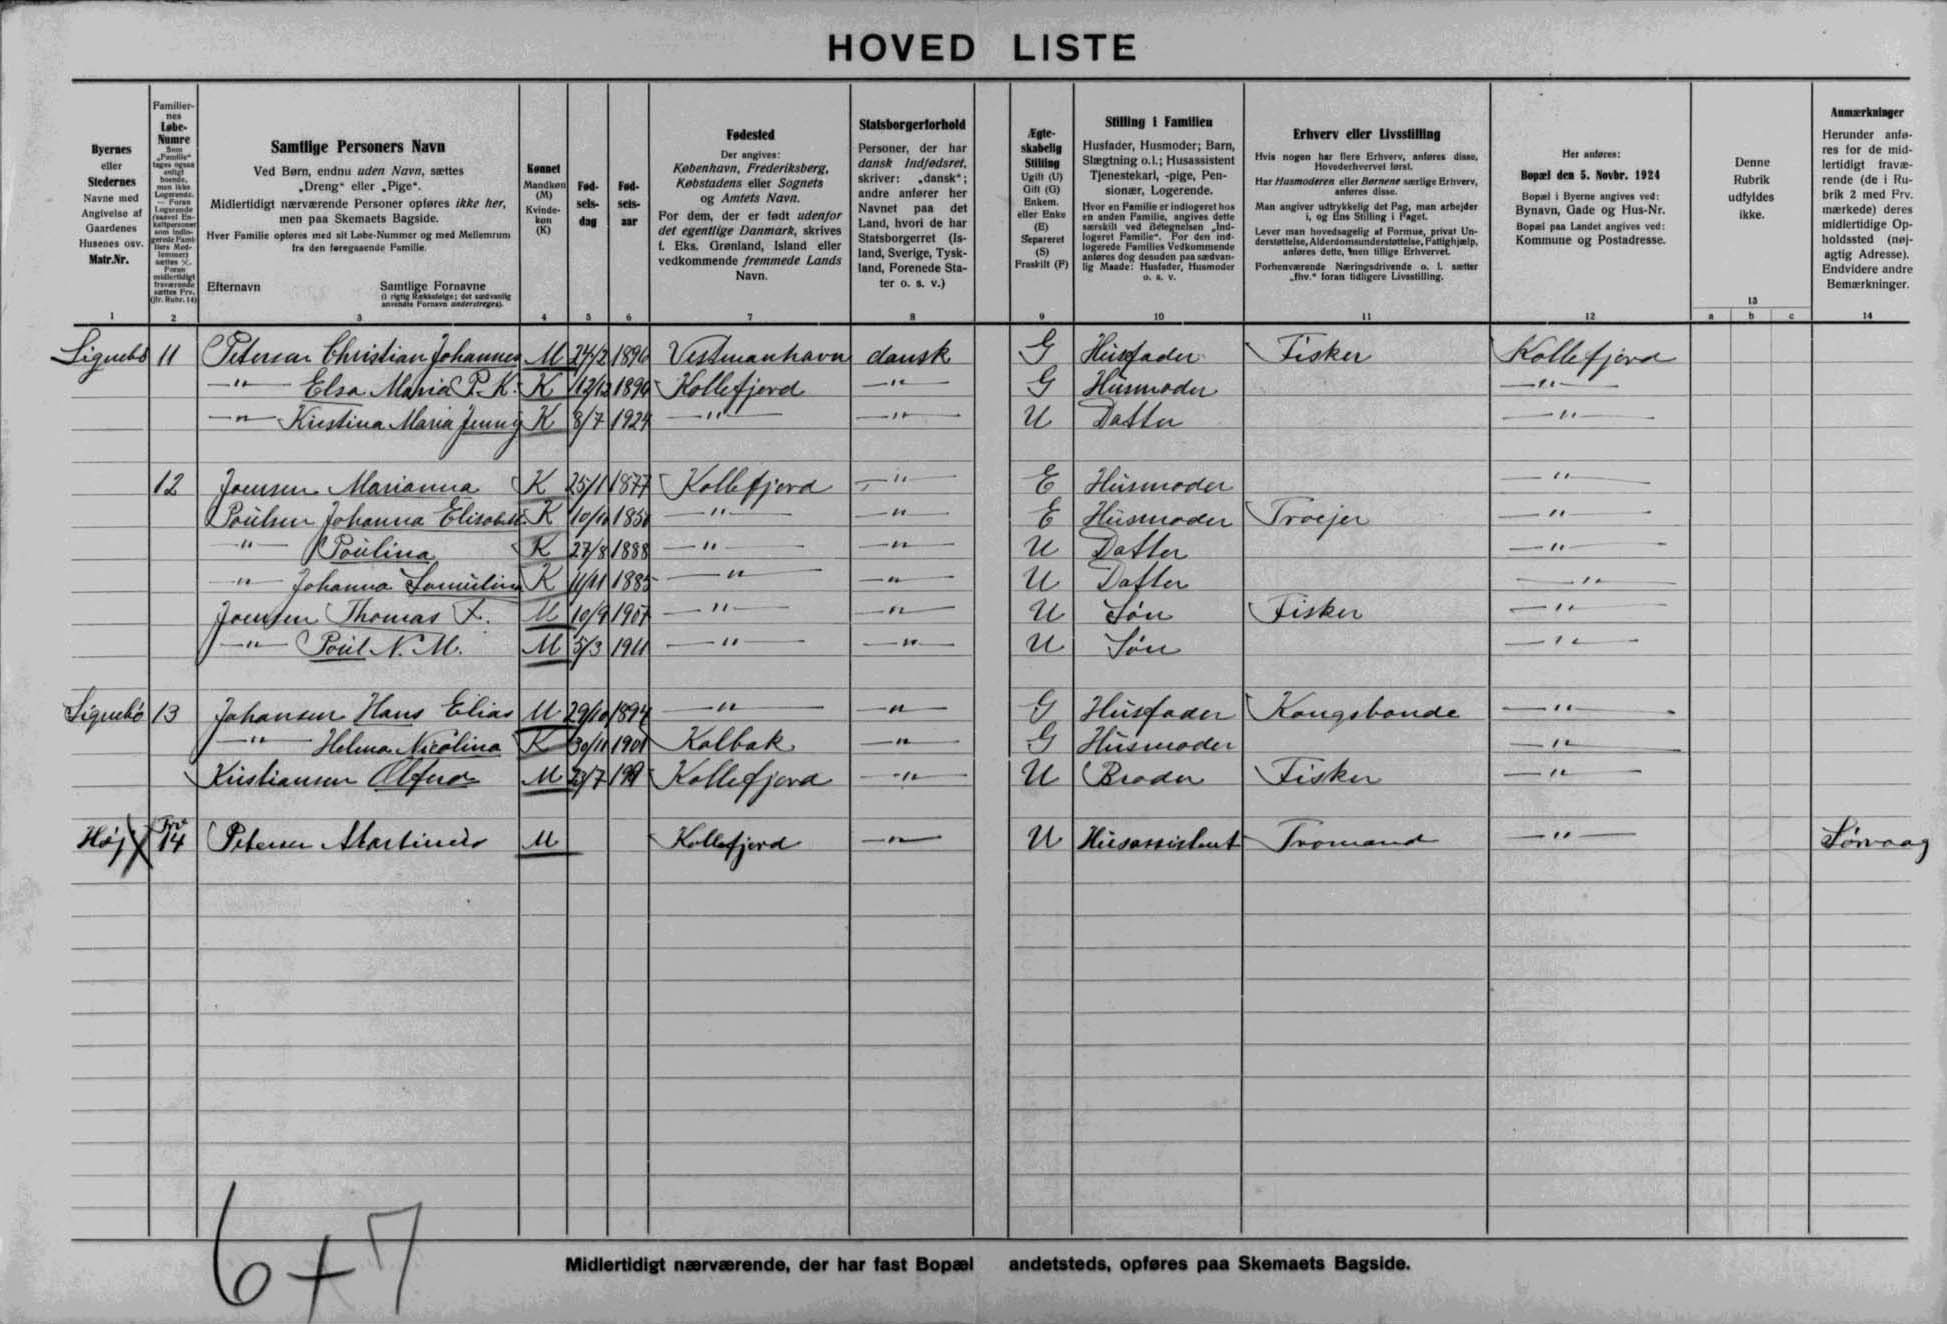 HOVED LISTE
Byernes
eller
Stedernes
Navne med
Angivelse af
Gaardenes
Husenes osv.
Matr.Nr.
1
Familier-
nes
Løbe-
Numre
Som
„Familie“
tages ogsaa
enligt
boende,
men ikke
Logerende.
— Foran
Logerende
(saavel En-
keltpersoner
som indlo-
gerede Fami-
liers Med-
lemmer)
sættes ⁒.
Foran
midlertidigt
fraværende
sættes Frv.
(jfr. Rubr. 14)
2
Samtlige Personers Navn
Ved Børn, endnu uden Navn, sættes
„Dreng“ eller „Pige“.
Midlertidigt nærværende Personer opføres ikke her,
men paa Skemaets Bagside.
Hver Familie opføres med sit Løbe-Nummer og med Mellemrum
fra den foregaaende Familie.
Efternavn Samtlige Fornavne
(i rigtig Rækkefølge; det sædvanlig
anvendte Fornavn understreges).
3
Kønnet
Mandkøn
(M)
Kvinde-
køn
(K)
4
Fød-
sels-
dag
5
Fød-
sels-
aar
6
Fødested
Der angives:
København, Frederiksberg,
Købstadens eller Sognets
og Amtets Navn.
For dem, der er født udenfor
det egentlige Danmark, skrives
f. Eks. Grønland, Island eller
vedkommende fremmede Lands
Navn.
7
Statsborgerforhold
Personer, der har
dansk Indfødsret,
skriver: „dansk“;
andre anfører her
Navnet paa det
Land, hvori de har
Statsborgerret (Is-
land, Sverige, Tysk-
land, Forenede Sta-
ter o. s. v.)
8
Ægte-
skabelig
Stilling
Ugift (U)
Gift (G)
Enkem.
eller Enke
(E)
Separeret
(S)
Fraskilt (F)
9
Stilling i Familien
Husfader, Husmoder; Barn,
Slægtning o.l.; Husassistent
Tjenestekarl, -pige, Pen-
sionær, Logerende.
Hvor en Familie er indlogeret hos
en anden Familie, angives dette
særskilt ved Betegnelsen „Ind-
logeret Familie“. For den ind-
logerede Families Vedkommende
anføres dog desuden paa sædvan-
lig Maade: Husfader, Husmoder
o. s. v.
10
Erhverv eller Livsstilling
Hvis nogen har flere Erhverv, anføres disse,
Hovederhvervet først.
Har Husmoderen eller Børnene særlige Erhverv,
anføres disse.
Man angiver udtrykkelig det Fag, man arbejder
i, og Ens Stilling i Faget.
Lever man hovedsagelig af Formue, privat Un-
derstøttelse, Alderdomsunderstøttelse, Fattighjælp,
anføres dette, men tillige Erhvervet.
Forhenværende Næringsdrivende o. l. sætter
„fhv.“ foran tidligere Livsstilling.
11
Her anføres:
Bopæl den 5. Novbr. 1924
Bopæl i Byerne angives ved:
Bynavn, Gade og Hus-Nr.
Bopæl paa Landet angives ved:
Kommune og Postadresse.
12
Denne
Rubrik
udfyldes
ikke.
13
a b c
Anmærkninger
Herunder anfø-
res for de mid-
lertidigt fravæ-
rende (de i Ru-
brik 2 med Frv.
mærkede) deres
midlertidige Op-
holdssted (nøj-
agtig Adresse).
Endvidere andre
Bemærkninger.
14
Signebø 11 Petersen Christian Johannes M 24/2 1896 Vestmanhavn dansk G Husfader Fisker Kollefjord
—"— Elsa Maria P. K. K 12/12 1890 Kollefjord —"— G Husmoder —"—
—"— Kristina Maria Jenny K 8/7 1924 —"— —"— U Datter —"—
12 Joensen Marianna K 25/1 1877 Kollefjord —"— E Husmoder —"—
Poulsen Johanna Elisabet K 10/10 1851 —"— —"— E Husmoder Trøjer —"—
—"— Poulina K 27/8 1888 —"— —"— U Datter —"—
—"— Johanna Samuline K 11/11 1885 —"— —"— U Datter —"—
Joensen Thomas F. M 10/9 1907 —"— —"— U Søn Fisker —"—
—"— Poul N. M. M 5/3 1911 —"— —"— U Søn —"—
Signebø 13 Johansen Hans Elias M 29/10 1894 —"— —"— G Husfader Kongsbonde —"—
—"— Helena Nicolina K 30/11 1901 Kalbak —"— G Husmoder —"—
Kristiansen Alfred M 23/7 Kollefjord —"— U Broder Fisker —"—
Høj Frv 14 Petersen Martinus M Kollefjord —"— U Husassistent Tromand —"— Sørvaag
Midlertidigt nærværende, der har fast Bopæl andetsteds, opføres paa Skemaets Bagside.
6+7